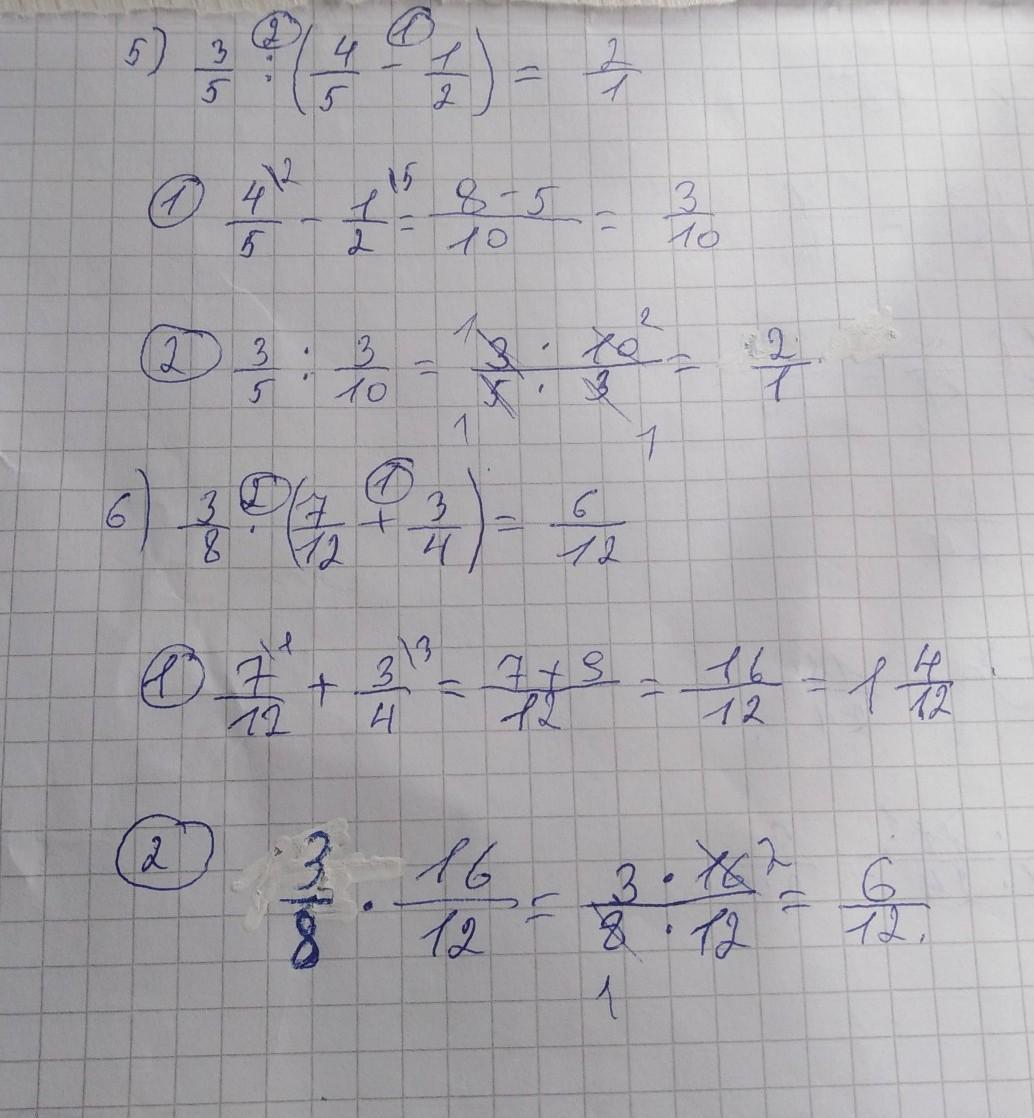 5) 3/5 ②: (4/5 ①- 1/2) = 2/1
① 4\2/5 - 1\5/2 = 8-5/10 = 3/10
② 3/5 : 3/10 = 1 3 · 10 2/5 · 3 1 1 = 2/1
6) 3/8 ②· (7/12 ①+ 3/4) = 6/12
① 7\1/12 + 3\3/4 = 7+9/12 = 16/12 = 1 4/12
② 3/8 · 16/12 = 3 · 16 2/8 · 12 1 = 6/12.